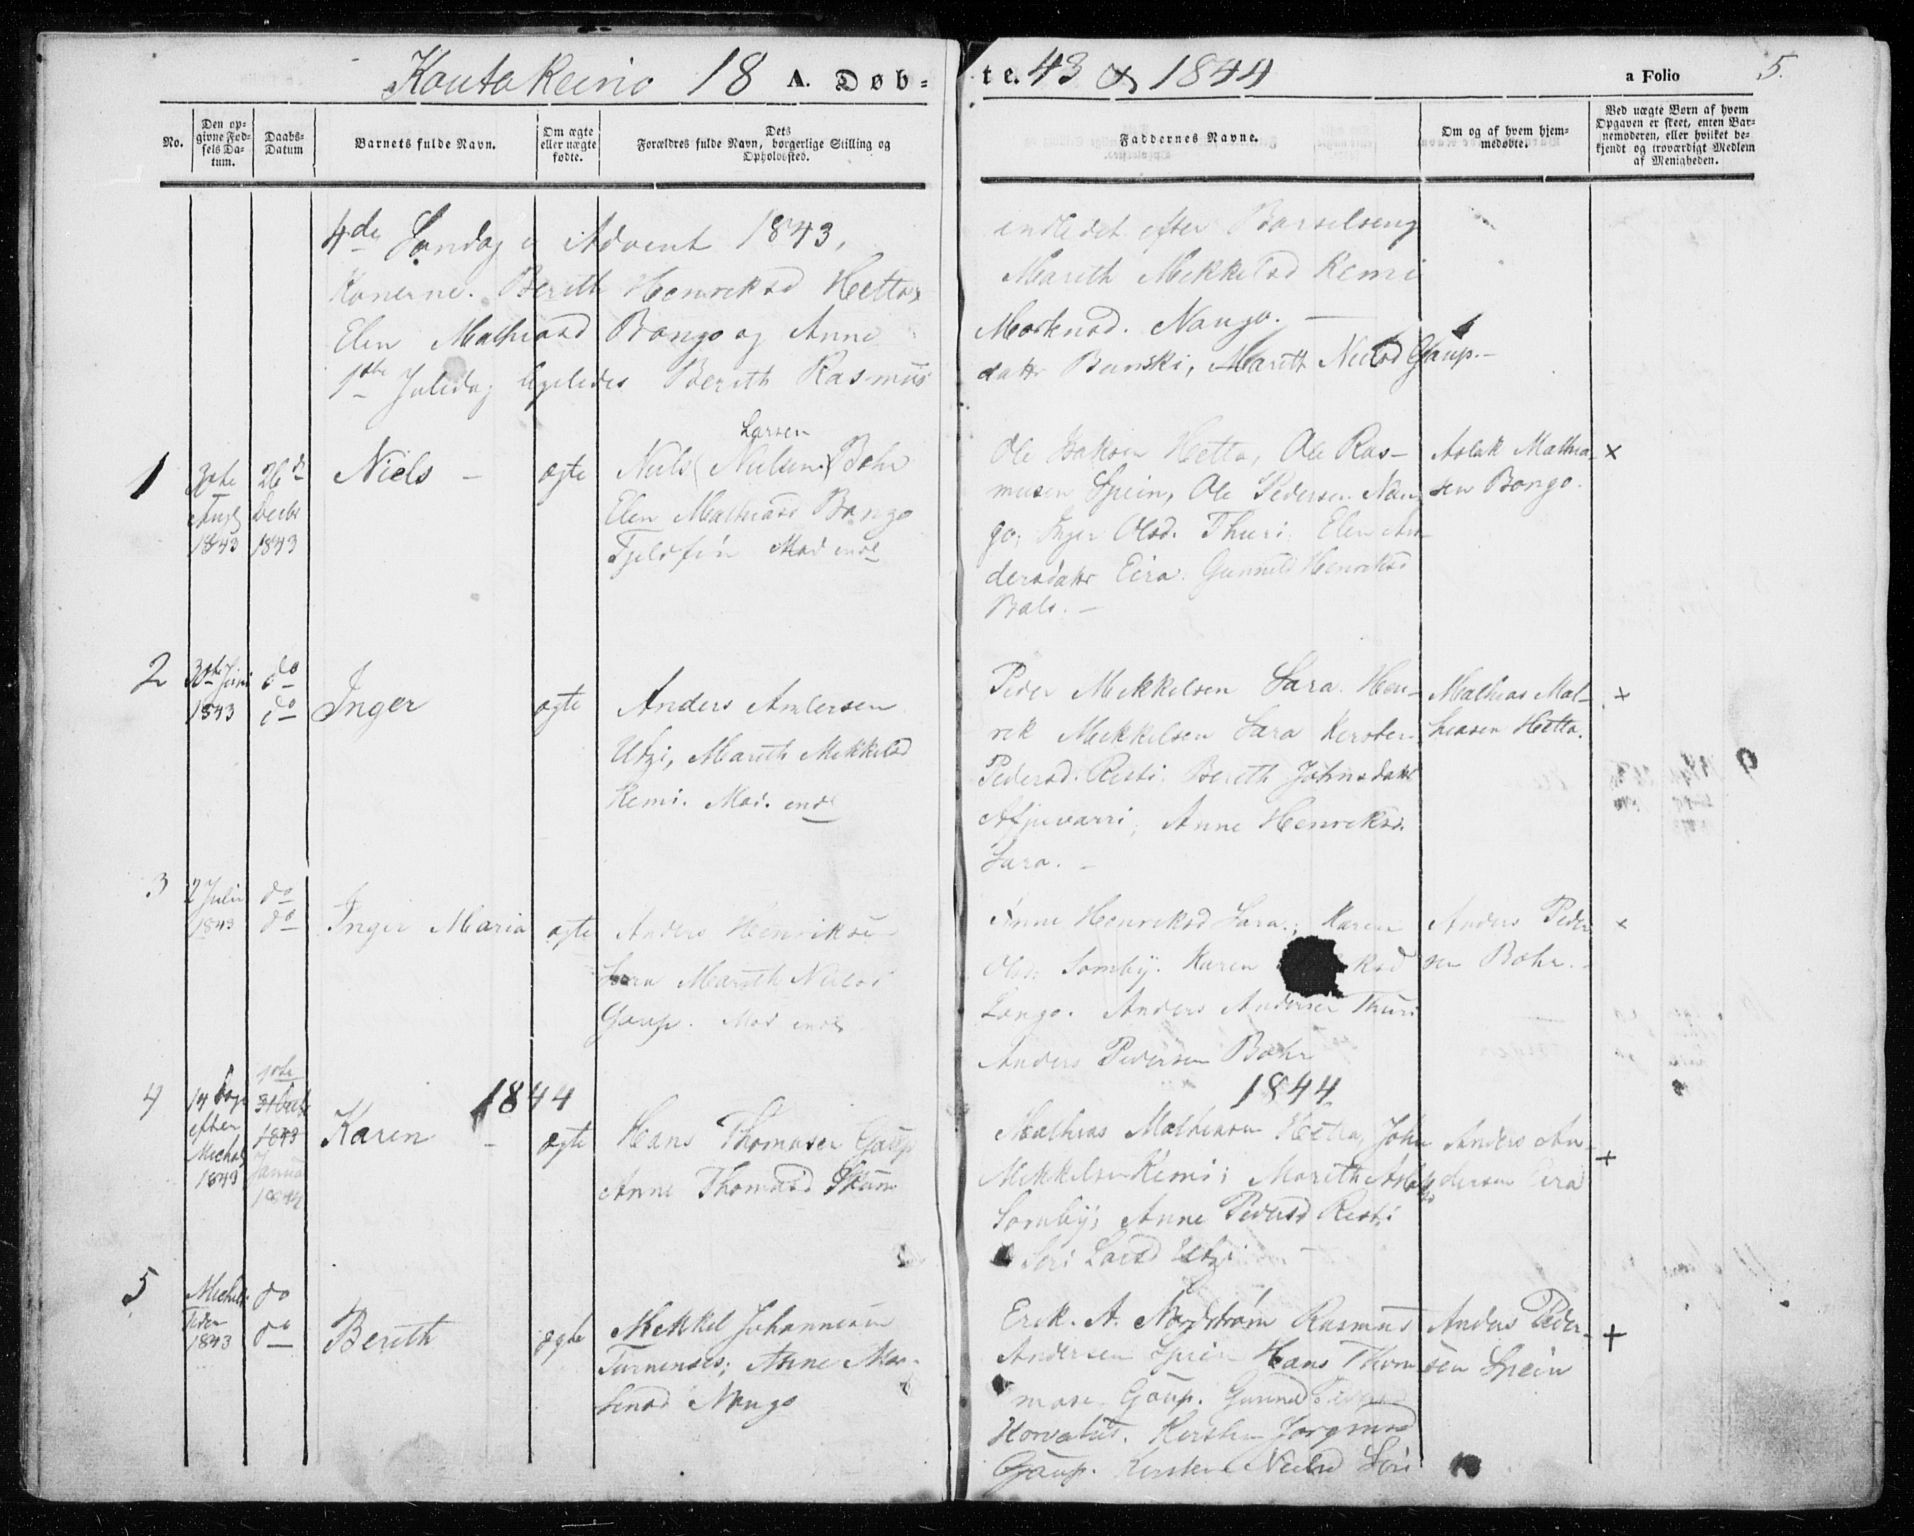 Kautokeino 18 A. Døb-
te. 43 & 1844
a Folio 5.
No.
Den op-
givne Fød-
sels Da-
tum.
Daabs-
Datum
Barnets fulde Navn.
Om ægte
eller uægte
fødte.
Dets
Forældres fulde Navn, borgerlige Stilling og
Opholdssted.
Faddernes Navne.
Om og af hvem hjem-
medøbte.
Ved uægte Børn af hvem
Opgaven er skeet, enten Bar-
nemoderen, eller hvilket be-
kjendt og troværdigt Medlem
af Menigheden.
4de Søndag i Advent 1843,
indledet efter Barselseng
Konerne. Berith Henriksd Hetta,
Marith Mikkelsd Kemi
Elen Mathiasd Bongo og Anne
Morknsd. Nango. —
1ste Juledag ligeledes Berith Rasmus
datter Bunski, Marith Nielsd Gaup. —
1
3ote
Aug
1843
26de
Decbr
1843
Niels —
ægte
Larsen
Niels (Nielsen) Bohr
Elen Mathiasd Bongo
Fjeldfin Mod indl
Ole Isaksen Hetta, Ole Ras-
musen Spein, Ole Pedersen Nan
go, Inger Olsd. Thuri, Elen An
dersdatter Eira. Gunnild Henriksd
Bals. —
Aslak Mathia-
sen Bongo.
×
2
30te Juni
1843
do
do
Inger
ægte
Anders Andersen
Utzi, Marith Mikkelsd
Kemi. Mod. indl
Peder Mikkelsen Sara. Hen-
rik Mikkelsen Sara Kirsten
Pedersd. Risti. Berith Johnsdatter
Afjuvarri, Anne Henriksd.
Sara. —
Mathias Mat-
hiesen Hetta.
×
3
2 Julii
1843
do
do
Inger Maria
ægte
Anders Henriksen
Sara Marith Nielsd
Gaup. Mod indl
Anne Henriksd Sara, Karen
Olsd. Somby. Karen ksd
Longo. Anders Andersen Thuri
Anders Pedersen Bohr
Anders Peder
sen Bohr. —
×
1844
1844
4
14 Dage
efter
Michaeli
1843
1ste
31 Decbr
1843
Januar
1844
Karen —
ægte
Hans Thomasen Gaup
Anne Thomasd Skum
Mathias Mathisen Hetta, John
Mikkelsen Kemi; Marith Aslaksd
Somby; Anne Pedersd Risti
Siri Larsd Utzi —
Anders An-
dersen Eira
+
5
Michali
Tider
1843
do
do
Berith
ægte
Mikkel Johannesen
Turnensis; Anne Mor-
tensd Nango
Erik. A. Nordstrøm Rasmus
Andersen Spein Hans Thom
masen Gaup. Gunnild
Korvatus. Kirsten Jørgensd
Gaup. Kirsten Nielsd Siri
Anders Peder-
sen Spein
+